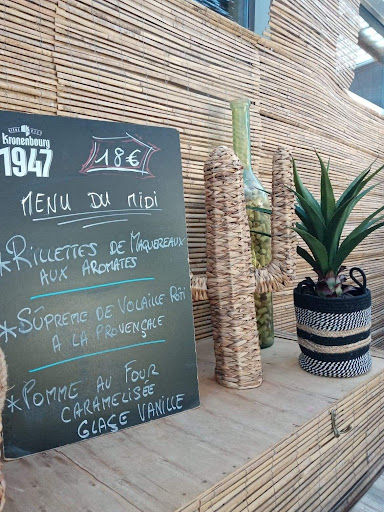 BIÈRE
Kronenbourg
1947
18€
MENU DU MIDI
*RILLETTES DE MAQUEREAUX
AUX AROMATES
*SÛPREME DE VOLAILLE RÔTI
A LA PROVENÇALE
*POMME AU FOUR
CARAMELISÉE
GLAÇE VANILLE